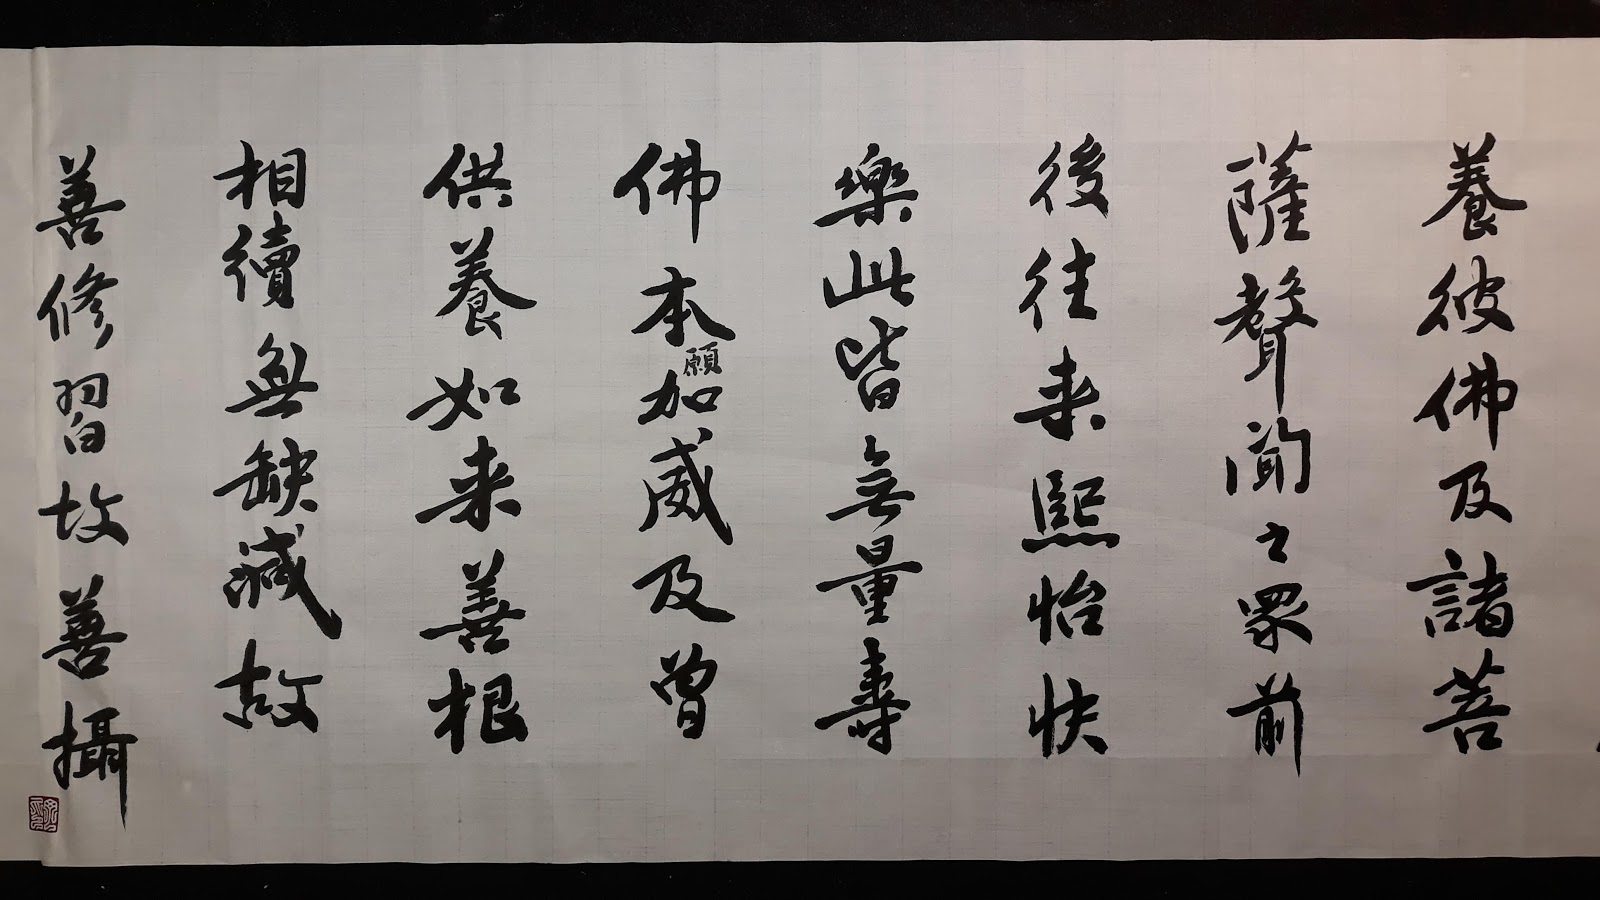 養彼佛及諸菩
薩聲聞之眾前
後往来熙怡快
樂此皆無量壽
佛本願加威及曽
供養如来善根
相續無缺減故
善修習故善攝